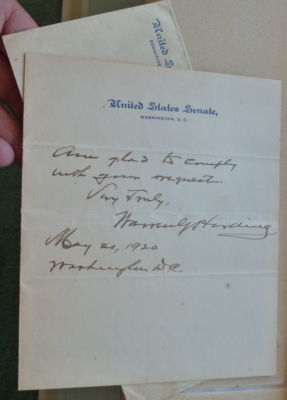 United States Sen
COMMITTEE
United States Senate,
WASHINGTON, D. C.
Am glad to comply
with your request.
Very Truly,
Warren G Harding
May 20, 1920
Washington D.C.